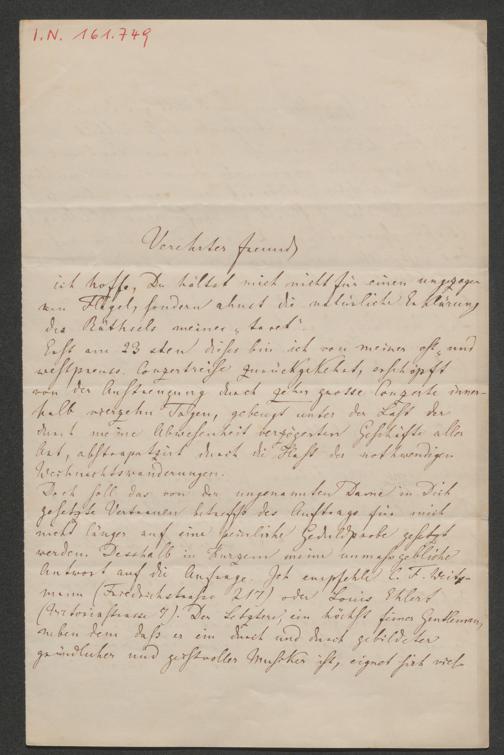 I.N. 161.749
Verehrter Freund
ich hoffe, Du hältst mich nicht für einen ungezogen
nen Flegel, sondern ahnst die natürliche Erklärung
des Räthsels meiner „tacet“.
Erst am 23 sten dieses bin ich von meiner ost- und
westpreuss. Conzertreise zurückgekehrt, erschöpft
von der Anstrengung durch zehn grosse Conzerte inner-
halb vierzehn Tagen, gebeugt unter der Last der
durch meine Abwesenheit verzögerten Geschäfte aller
Art, abstrapatzirt durch die Hast der nothwendigen
Weihnachtswanderungen.
Doch soll das von der ungenannten Dame in Dich
gesetzte Vertrauen betreffs des Auftrags für mich
nicht länger auf eine peinliche Geduldprobe gesetzt
werden. Desshalb in Kurzem meine unmassgebliche
Antwort auf die Anfrage. Ich empfehle C. F. Weitz-
mann (Friedrichstrasse 217) oder Louis Ehlert
(Victoriastrasse 7). Der Letztere, ein höchst feiner Gentleman,
neben dem daß er ein durch und durch gebildeter
gründlicher und geistvoller Musiker ist, eignet sich viel-